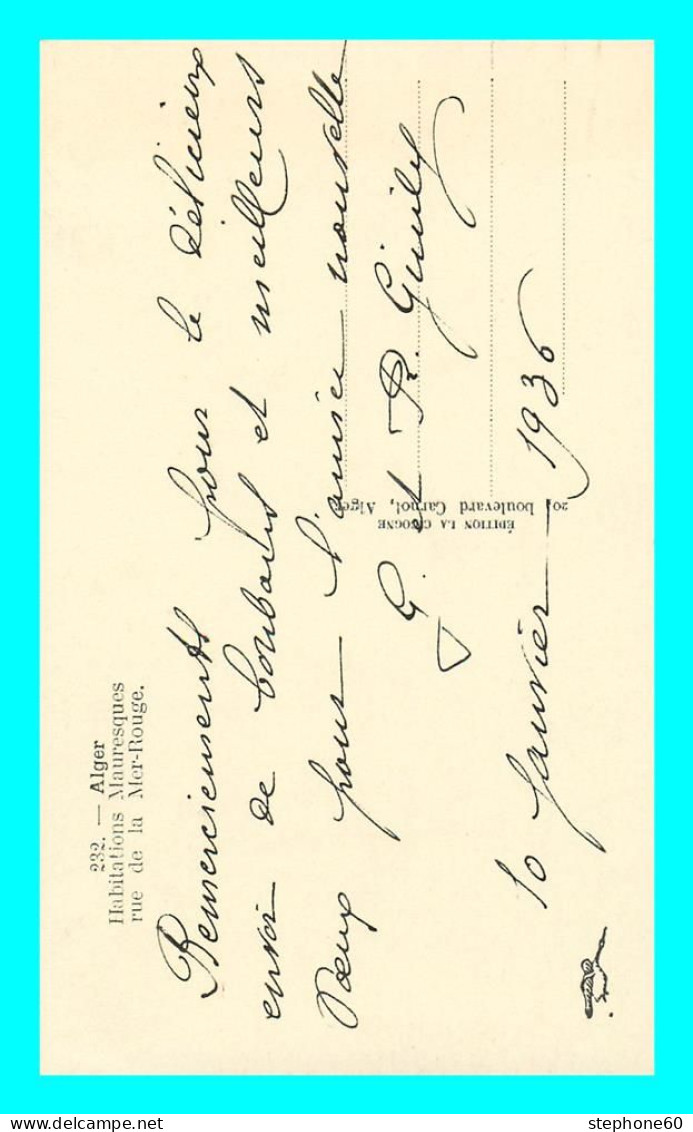 232. — Alger
Habitations Mauresques
rue de la Mer-Rouge.
Remerciements pour le délicieux
envoi de bonbons et meilleurs
vœux pour l'année nouvelle
G. et R.
10 Janvier 1936
ÉDITION LA CIGOGNE
20, boulevard Carnot, Alger
stephone60